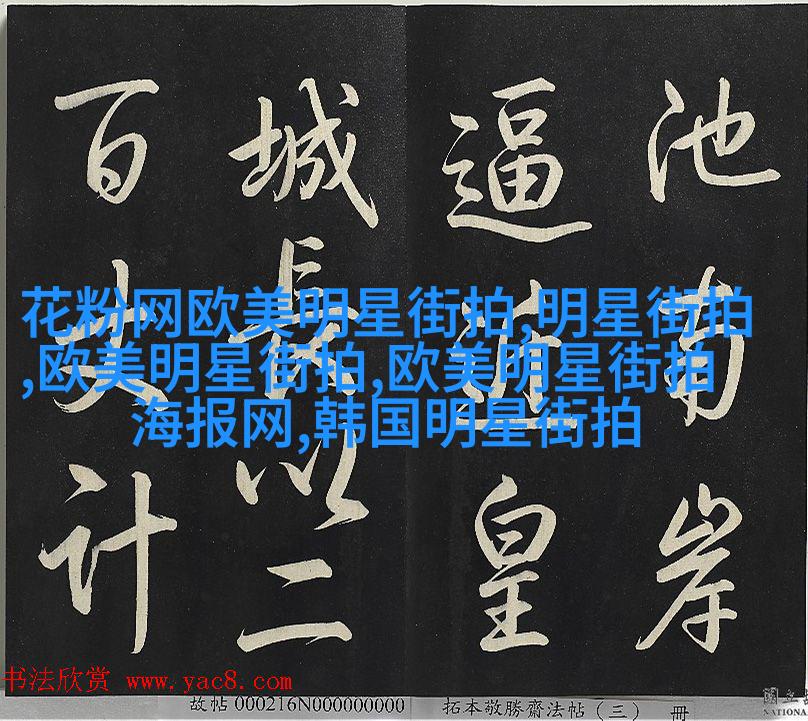 池南岸
逼皇
城長以二
百丈計
花粉网欧美明星街拍,明星街拍
,欧美明星街拍,欧美明星街拍
海报网,韩国明星街拍
书法欣赏 www.yac8.com
故帖 000216N000000000 拓本敬勝齋法帖（三） 冊
國立
NATIONA